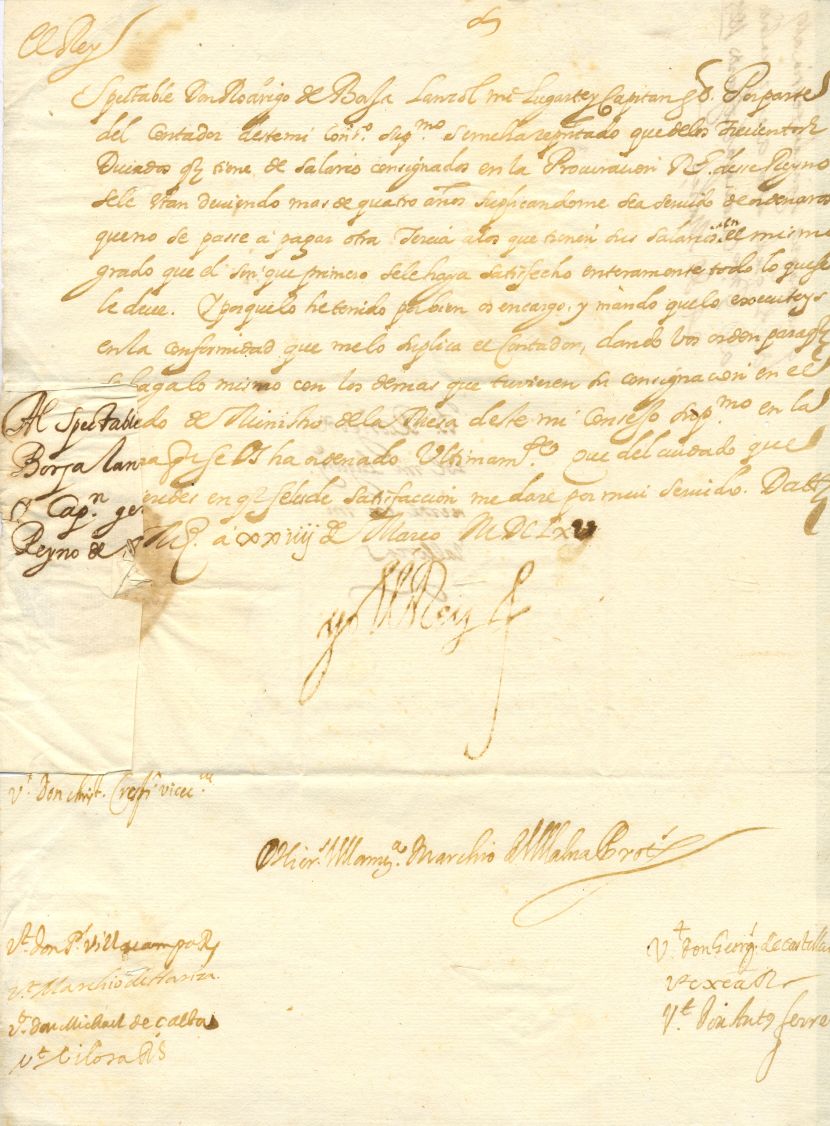 El Rey
Spectable Don Rodrigo de Borja Lanzol mi Lugarte y Capitan gl. Por parte
del Contador deste mi Conso. Supmo. se me ha repntado que de los trecientos
Ducados q tiene de salario consignados en la Procuracion Rl. desse Reyno
se le stan deviendo mas de quatro años suplicandome sea servido de ordenaros
que no se passe a pagar otra Tercia a los que tienen sus salarios en el mismo
grado que el sin que primero se le haya satisfecho enteramente todo lo que se
le deve. Y porque lo he tenido por bien os encargo, y mando que lo executeys
en la conformidad que me lo suplica el Contador, dando vos orden para q
se haga lo mismo con los demas que tuvieren su consignacion en el
do de Ministro de la Mesa deste mi Consejo Supmo. en la
ra q se os ha ordenado Ultimamte. Que del cuidado que
en q se le de satisfaccion me dare por mui servido. Datt
a xxviiij de Março MDCLxv
Al Spectable
Borja Lanz
y Capn. ge
Reyno de
yo el Rey
Vt. Don Christ. Crespi vicecus.
Marchio Prots.
Vt. don Pl. Villacampa R
Vt. Marchio de Hariza.
Vt. don Michael de Çalba
Vt. don Georg. de Castellui
Vt. exea R
Vt. Don Ant Ferre